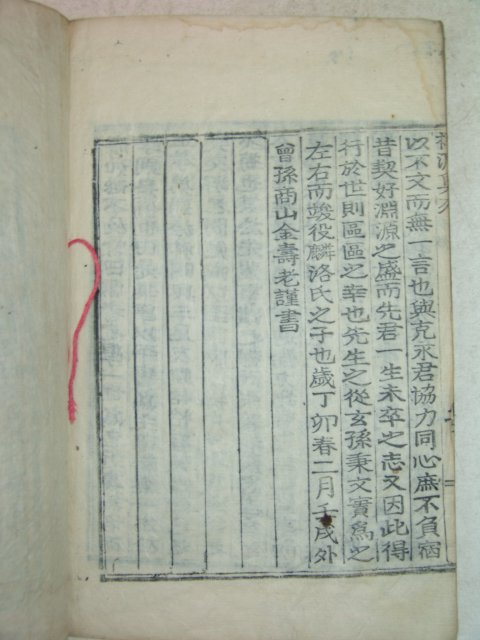 以不文而無一言也與克承君協力同心庶不負宿
昔契好淵源之盛而先君一生未卒之志又因此得
行於世則區區之幸也先生之從玄孫秉文實爲之
左右而竣役麟洛氏之子也歲丁卯春二月壬戌外
曾孫商山金壽老謹書